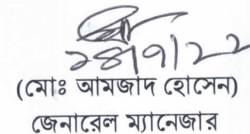 ২৪/৭/২২
(মোঃ আমজাদ হোসেন)
জেনারেল ম্যানেজার